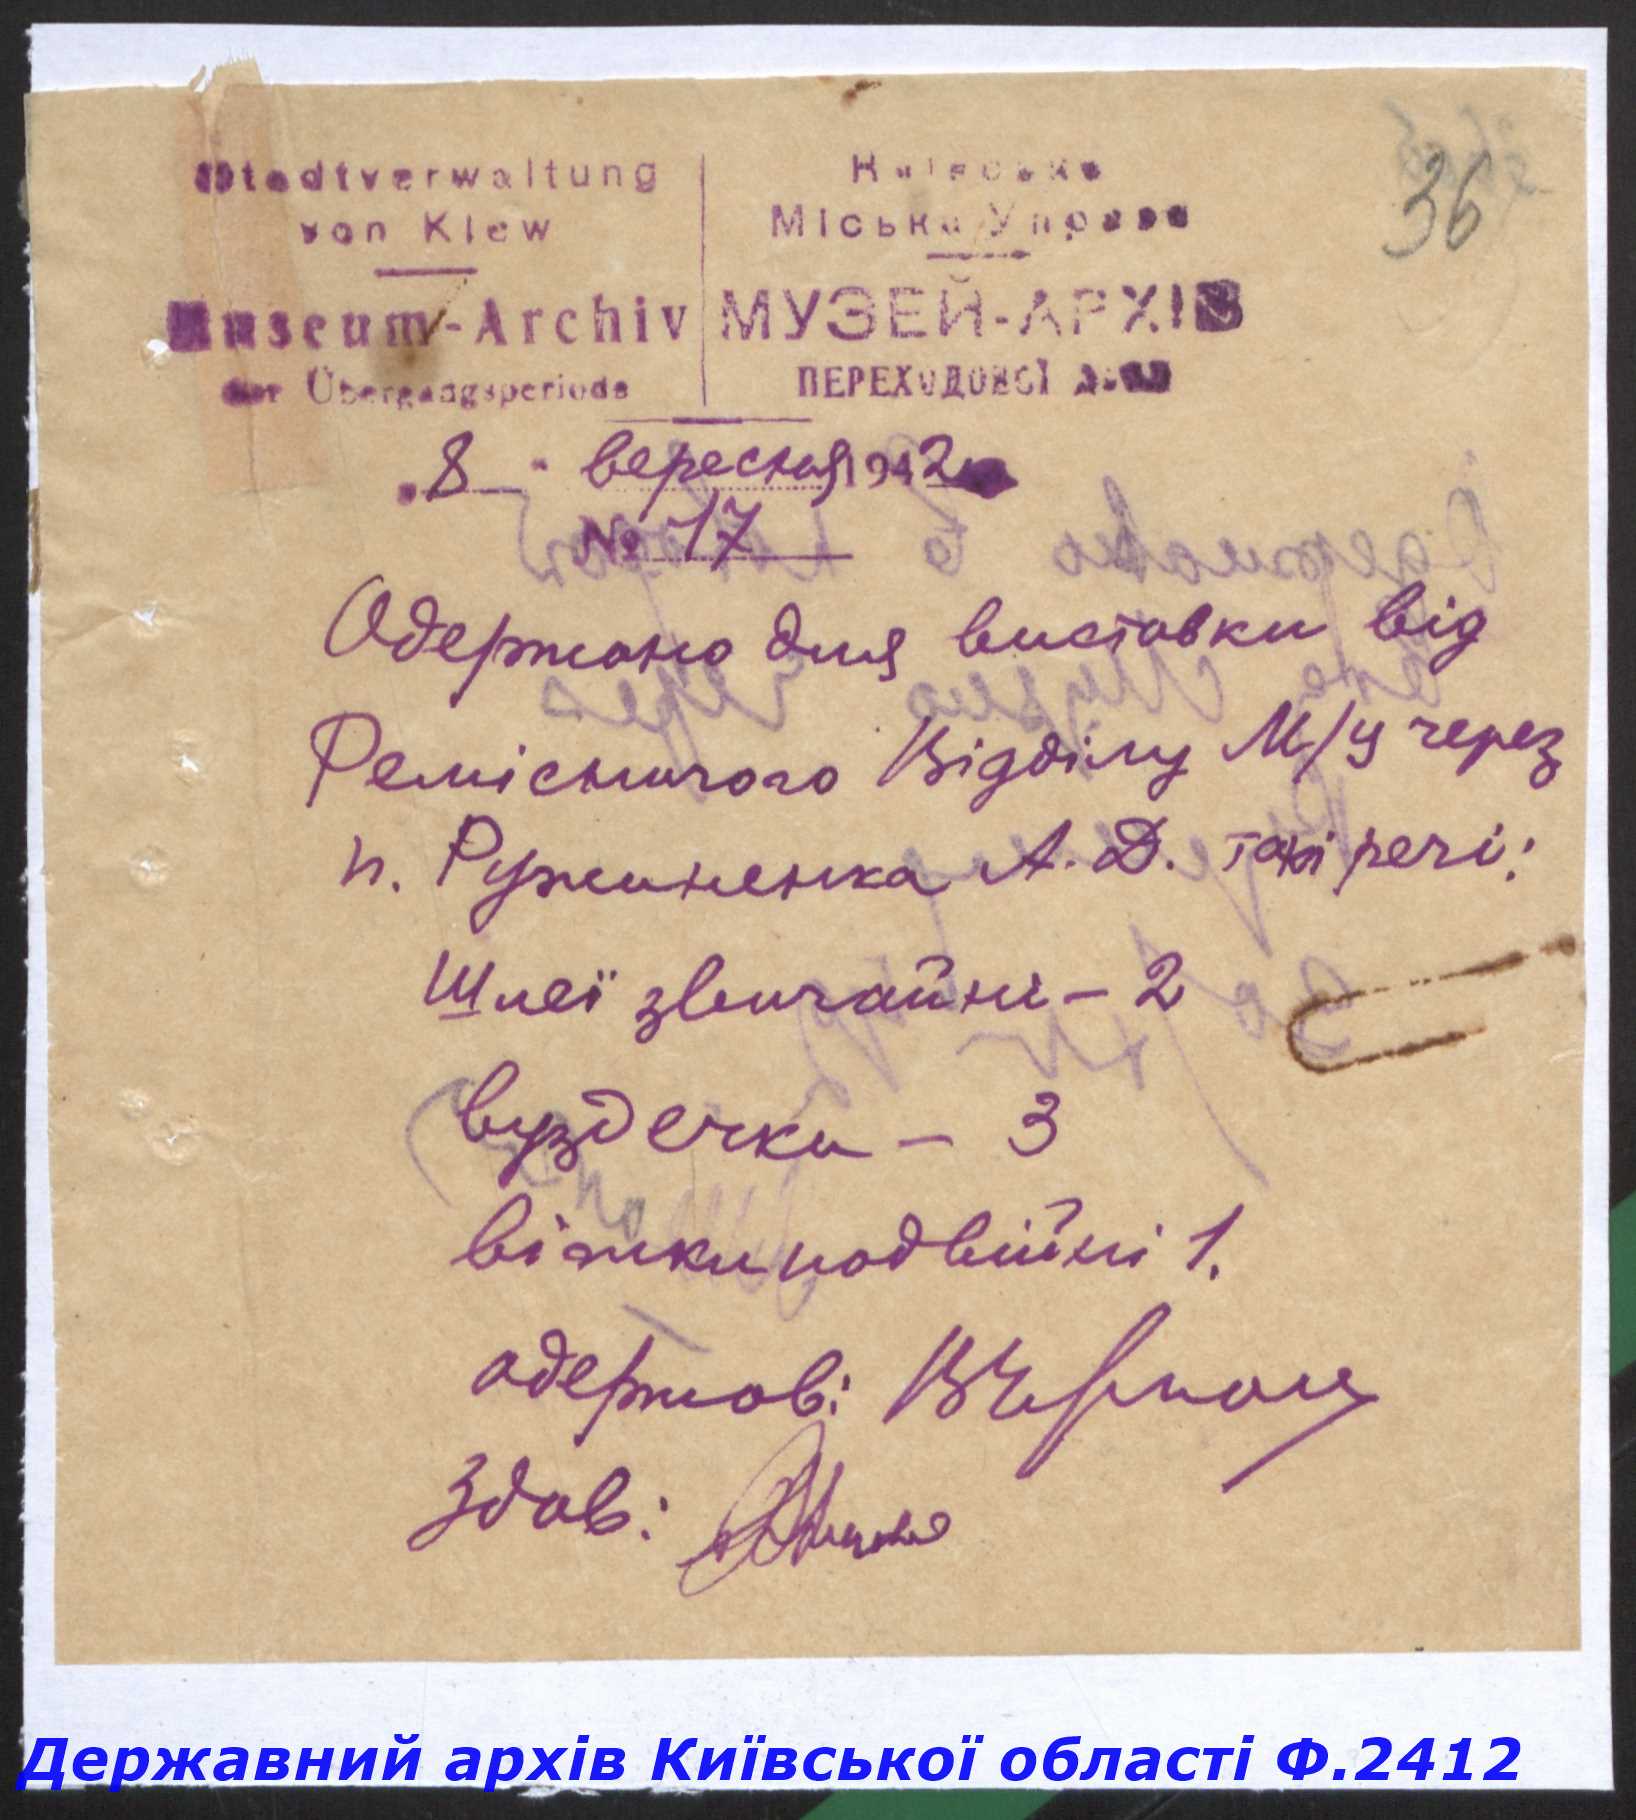 Stadtverwaltung
von Kiew
Museum-Archiv
der Übergangsperiode
Київська
Міська Управа
МУЗЕЙ-АРХІВ
ПЕРЕХОДОВОЇ ДОБИ
36
"8" вересня 1942
№ 17
Одержано для виставки від
Ремісничого Відділу М/У через
п. Ружиненка А. Д. такі речі:
Шлеї звичайні – 2
вуздечки – 3
віжки подвійні 1.
одержав:
Здав:
Державний архів Київської області Ф.2412